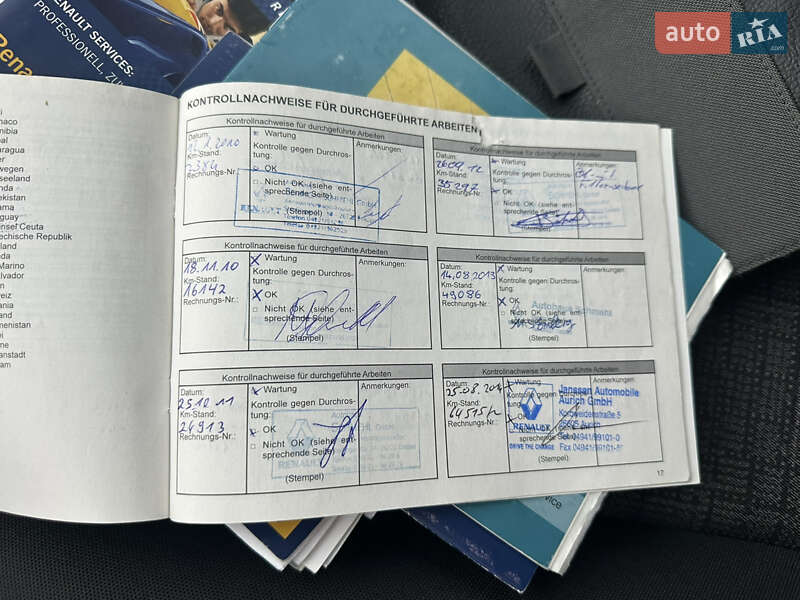 RENAULT SERVICES:
PROFESSIONELL, ZU
Rena
auto RIA
.com
naco
mibia
pal
aragua
n
seeland
nda
ekistan
ama
aguay
nsef Ceuta
echische Republik
land
eda
Marino
lvador
en
weiz
ania
and
menistan
ei
me
anstadt
am
KONTROLLNACHWEISE FÜR DURCHGEFÜHRTE ARBEITEN
Kontrollnachweise für durchgeführte Arbeiten
Datum:
Wartung
Anmerkungen:
Km-Stand:
Kontrolle gegen Durchros-
tung:
Rechnungs-Nr.:
OK
Nicht OK (siehe ent-
sprechende Seite)
(Stempel)
Kontrollnachweise für durchgeführte Arbeiten
Datum:
18.11.10
Wartung
Anmerkungen:
Km-Stand:
16142
Kontrolle gegen Durchros-
tung:
Rechnungs-Nr.:
OK
Nicht OK (siehe ent-
sprechende Seite)
(Stempel)
Kontrollnachweise für durchgeführte Arbeiten
Datum:
25 10 11
Wartung
Anmerkungen:
Km-Stand:
24913
Kontrolle gegen Durchros-
tung:
Rechnungs-Nr.:
OK
Nicht OK (siehe ent-
sprechende Seite)
RENAULT
(Stempel)
Kontrollnachweise für durchgeführte Arbeiten
Datum:
2609 12
Wartung
Anmerkungen:
Km-Stand:
35297
Kontrolle gegen Durchros-
tung:
Rechnungs-Nr.:
OK
Nicht OK (siehe ent-
sprechende Seite)
(Stempel)
Kontrollnachweise für durchgeführte Arbeiten
Datum:
14.08.2013
Wartung
Anmerkungen:
Km-Stand:
49086
Kontrolle gegen Durchros-
tung:
Rechnungs-Nr.:
OK
Nicht OK (siehe ent-
sprechende Seite)
(Stempel)
Kontrollnachweise für durchgeführte Arbeiten
Datum:
Wartung
Anmerkungen:
Km-Stand:
Kontrolle gegen Durchros-
tung:
Rechnungs-Nr.:
OK
Nicht OK (siehe ent-
sprechende Seite)
(Stempel)
RENAULT
DRIVE THE CHANGE
Janssen Automobile
Aurich GmbH
Aurich
Tel. 04941/99101-0
Fax 04941/99101-
17
vice